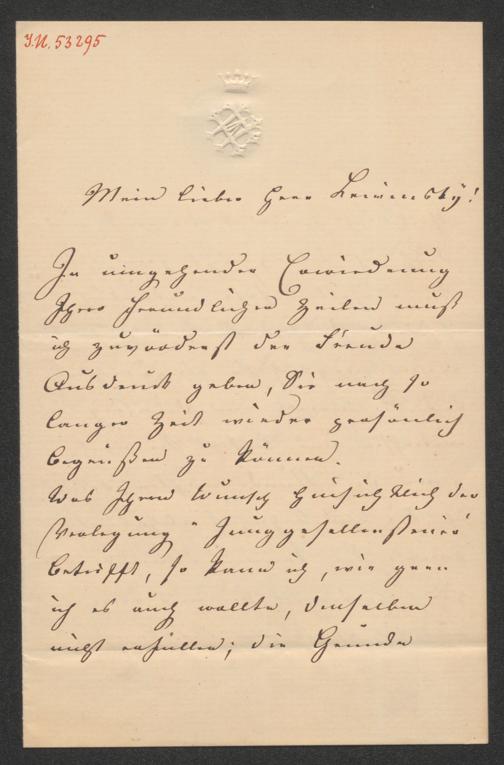 J.N. 53295
Mein lieber Herr Lewinsky!
In umgehender Erwiederung
Ihrer freundlichen Zeilen muß
ich zuvörderst der Freude
Ausdruck geben, Sie nach so
langer Zeit wieder persönlich
begrüßen zu können.
Was Ihren Wunsch hinsichtlich der
Verlegung "Junggesellensteuer"
betrifft, so kann ich, wie gern
ich es auch wollte, demselben
nicht erfüllen; die Gründe